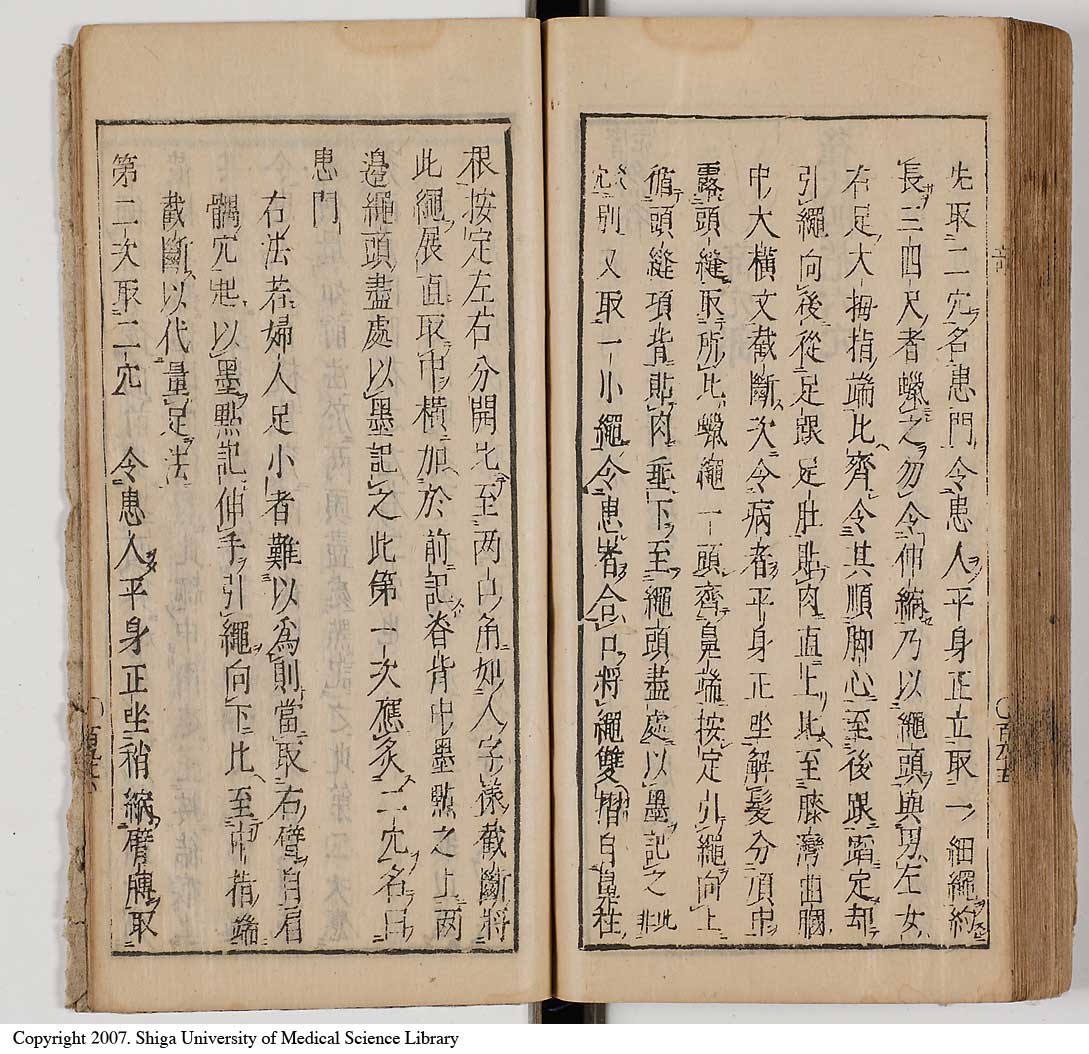 先取二穴名患門令患人平身正立取一細繩約
長三四尺者蠟之勿令伸縮乃以繩頭與男左女
右足大拇指端比齊令其順脚心至後跟踏定却
引繩向後從足跟足肚貼肉直上比至膝灣曲䐐
中大橫文截斷次令病者平身正坐解髮分項中
露頭縫取所比蠟繩一頭齊鼻端按定引繩向上
循頭縫項背貼肉垂下至繩頭盡處以墨記之此非
灸穴別又取一小繩令患者合口將繩雙摺自鼻柱
根按定左右分開比至両吻角如人字樣截斷將
此繩展直取中橫加於前記脊背中墨點之上两
邊繩頭盡處以墨記之此第一次應灸二穴名曰
患門
右法若婦人足小者難以為則當取右臂自肩
髃穴起以墨點記伸手引繩向下比至中指端
截斷以代量足法
第二次取二穴 令患人平身正坐稍縮臂膊取
Copyright 2007. Shiga University of Medical Science Library